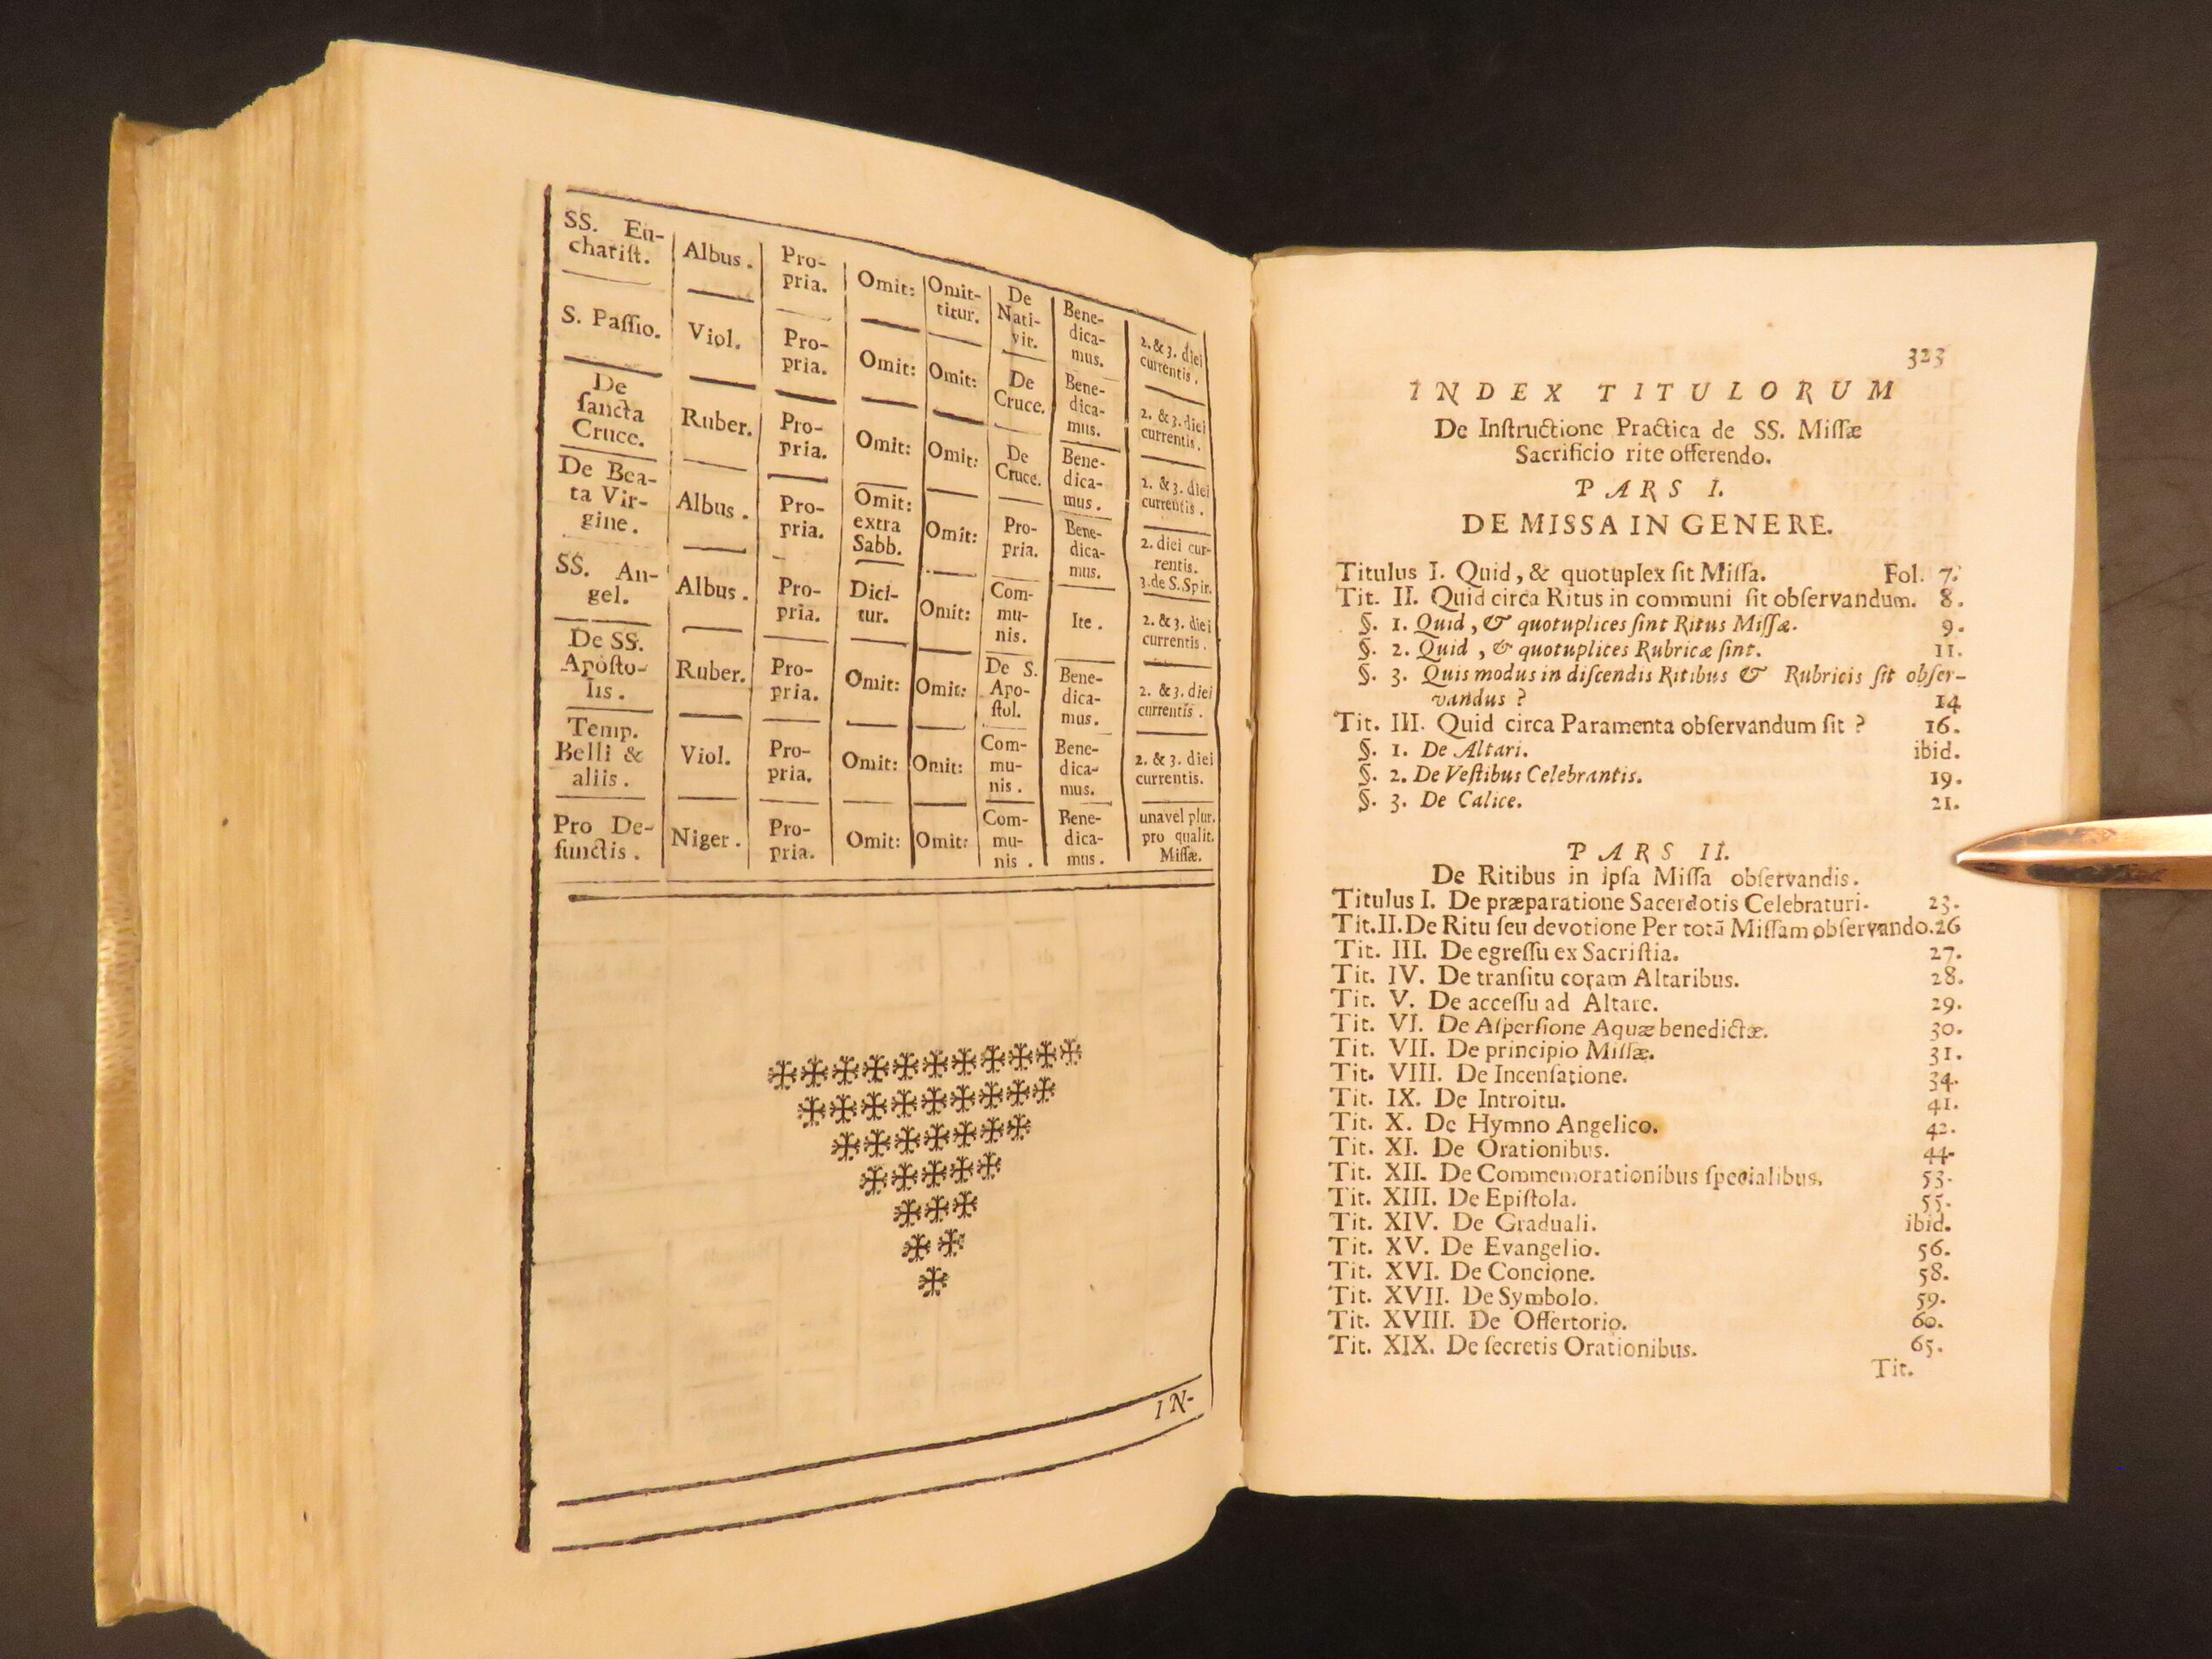 SS. Eu-
chariſt.
Albus.
Pro-
pria.
Omit:
Omit-
titur.
De
Nati-
vit.
Bene-
dica-
mus.
2. & 3. diei
currentis.
S. Paſſio.
Viol.
Pro-
pria.
Omit:
Omit:
De
Cruce.
Bene-
dica-
mus.
2. & 3. diei
currentis.
De
ſancta
Cruce.
Ruber.
Pro-
pria.
Omit:
Omit:
De
Cruce.
Bene-
dica-
mus.
2. & 3. diei
currentis.
De Bea-
ta Vir-
gine.
Albus.
Pro-
pria.
Omit:
extra
Sabb.
Omit:
Pro-
pria.
Bene-
dica-
mus.
2. diei cur-
rentis.
3. de S. Spir.
SS. An-
gel.
Albus.
Pro-
pria.
Dici-
tur.
Omit:
Com-
mu-
nis.
Ite.
2. & 3. diei
currentis.
De SS.
Apoſto-
lis.
Ruber.
Pro-
pria.
Omit:
Omit:
De S.
Apo-
ſtol.
Bene-
dica-
mus.
2. & 3. diei
currentis.
Temp.
Belli &
aliis.
Viol.
Pro-
pria.
Omit:
Omit:
Com-
mu-
nis.
Bene-
dica-
mus.
2. & 3. diei
currentis.
Pro De-
functis.
Niger.
Pro-
pria.
Omit:
Omit:
Com-
mu-
nis.
Bene-
dica-
mus.
una vel plur.
pro qualit.
Miſſæ.
IN-
323
INDEX TITULORUM
De Inſtructione Practica de SS. Miſſæ
Sacrificio rite offerendo.
PARS I.
DE MISSA IN GENERE.
Titulus I. Quid, & quotuplex ſit Miſſa. Fol. 7.
Tit. II. Quid circa Ritus in communi ſit obſervandum. 8.
§. 1. Quid, & quotuplices ſint Ritus Miſſæ. 9.
§. 2. Quid, & quotuplices Rubricæ ſint. 11.
§. 3. Quis modus in diſcendis Ritibus & Rubricis ſit obſer-
vandus? 14
Tit. III. Quid circa Paramenta obſervandum ſit? 16.
§. 1. De Altari. ibid.
§. 2. De Veſtibus Celebrantis. 19.
§. 3. De Calice. 21.
PARS II.
De Ritibus in ipſa Miſſa obſervandis.
Titulus I. De præparatione Sacerdotis Celebraturi. 23.
Tit. II. De Ritu ſeu devotione Per totā Miſſam obſervando. 26
Tit. III. De egreſſu ex Sacriſtia. 27.
Tit. IV. De tranſitu coram Altaribus. 28.
Tit. V. De acceſſu ad Altare. 29.
Tit. VI. De Aſperſione Aquæ benedictæ. 30.
Tit. VII. De principio Miſſæ. 31.
Tit. VIII. De Incenſatione. 34.
Tit. IX. De Introitu. 41.
Tit. X. De Hymno Angelico. 42.
Tit. XI. De Orationibus. 44.
Tit. XII. De Commemorationibus ſpecialibus. 53.
Tit. XIII. De Epiſtola. 55.
Tit. XIV. De Graduali. ibid.
Tit. XV. De Evangelio. 56.
Tit. XVI. De Concione. 58.
Tit. XVII. De Symbolo. 59.
Tit. XVIII. De Offertorio. 60.
Tit. XIX. De ſecretis Orationibus. 65.
Tit.